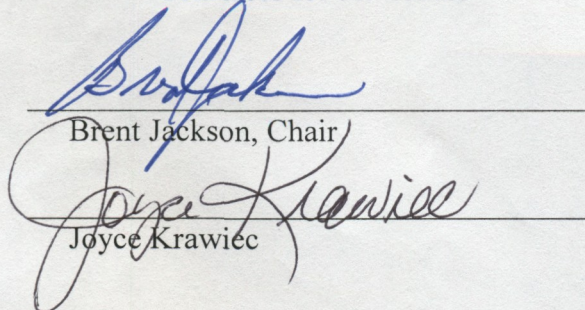 Brent Jackson
Brent Jackson, Chair
Joyce Krawiec
Joyce Krawiec